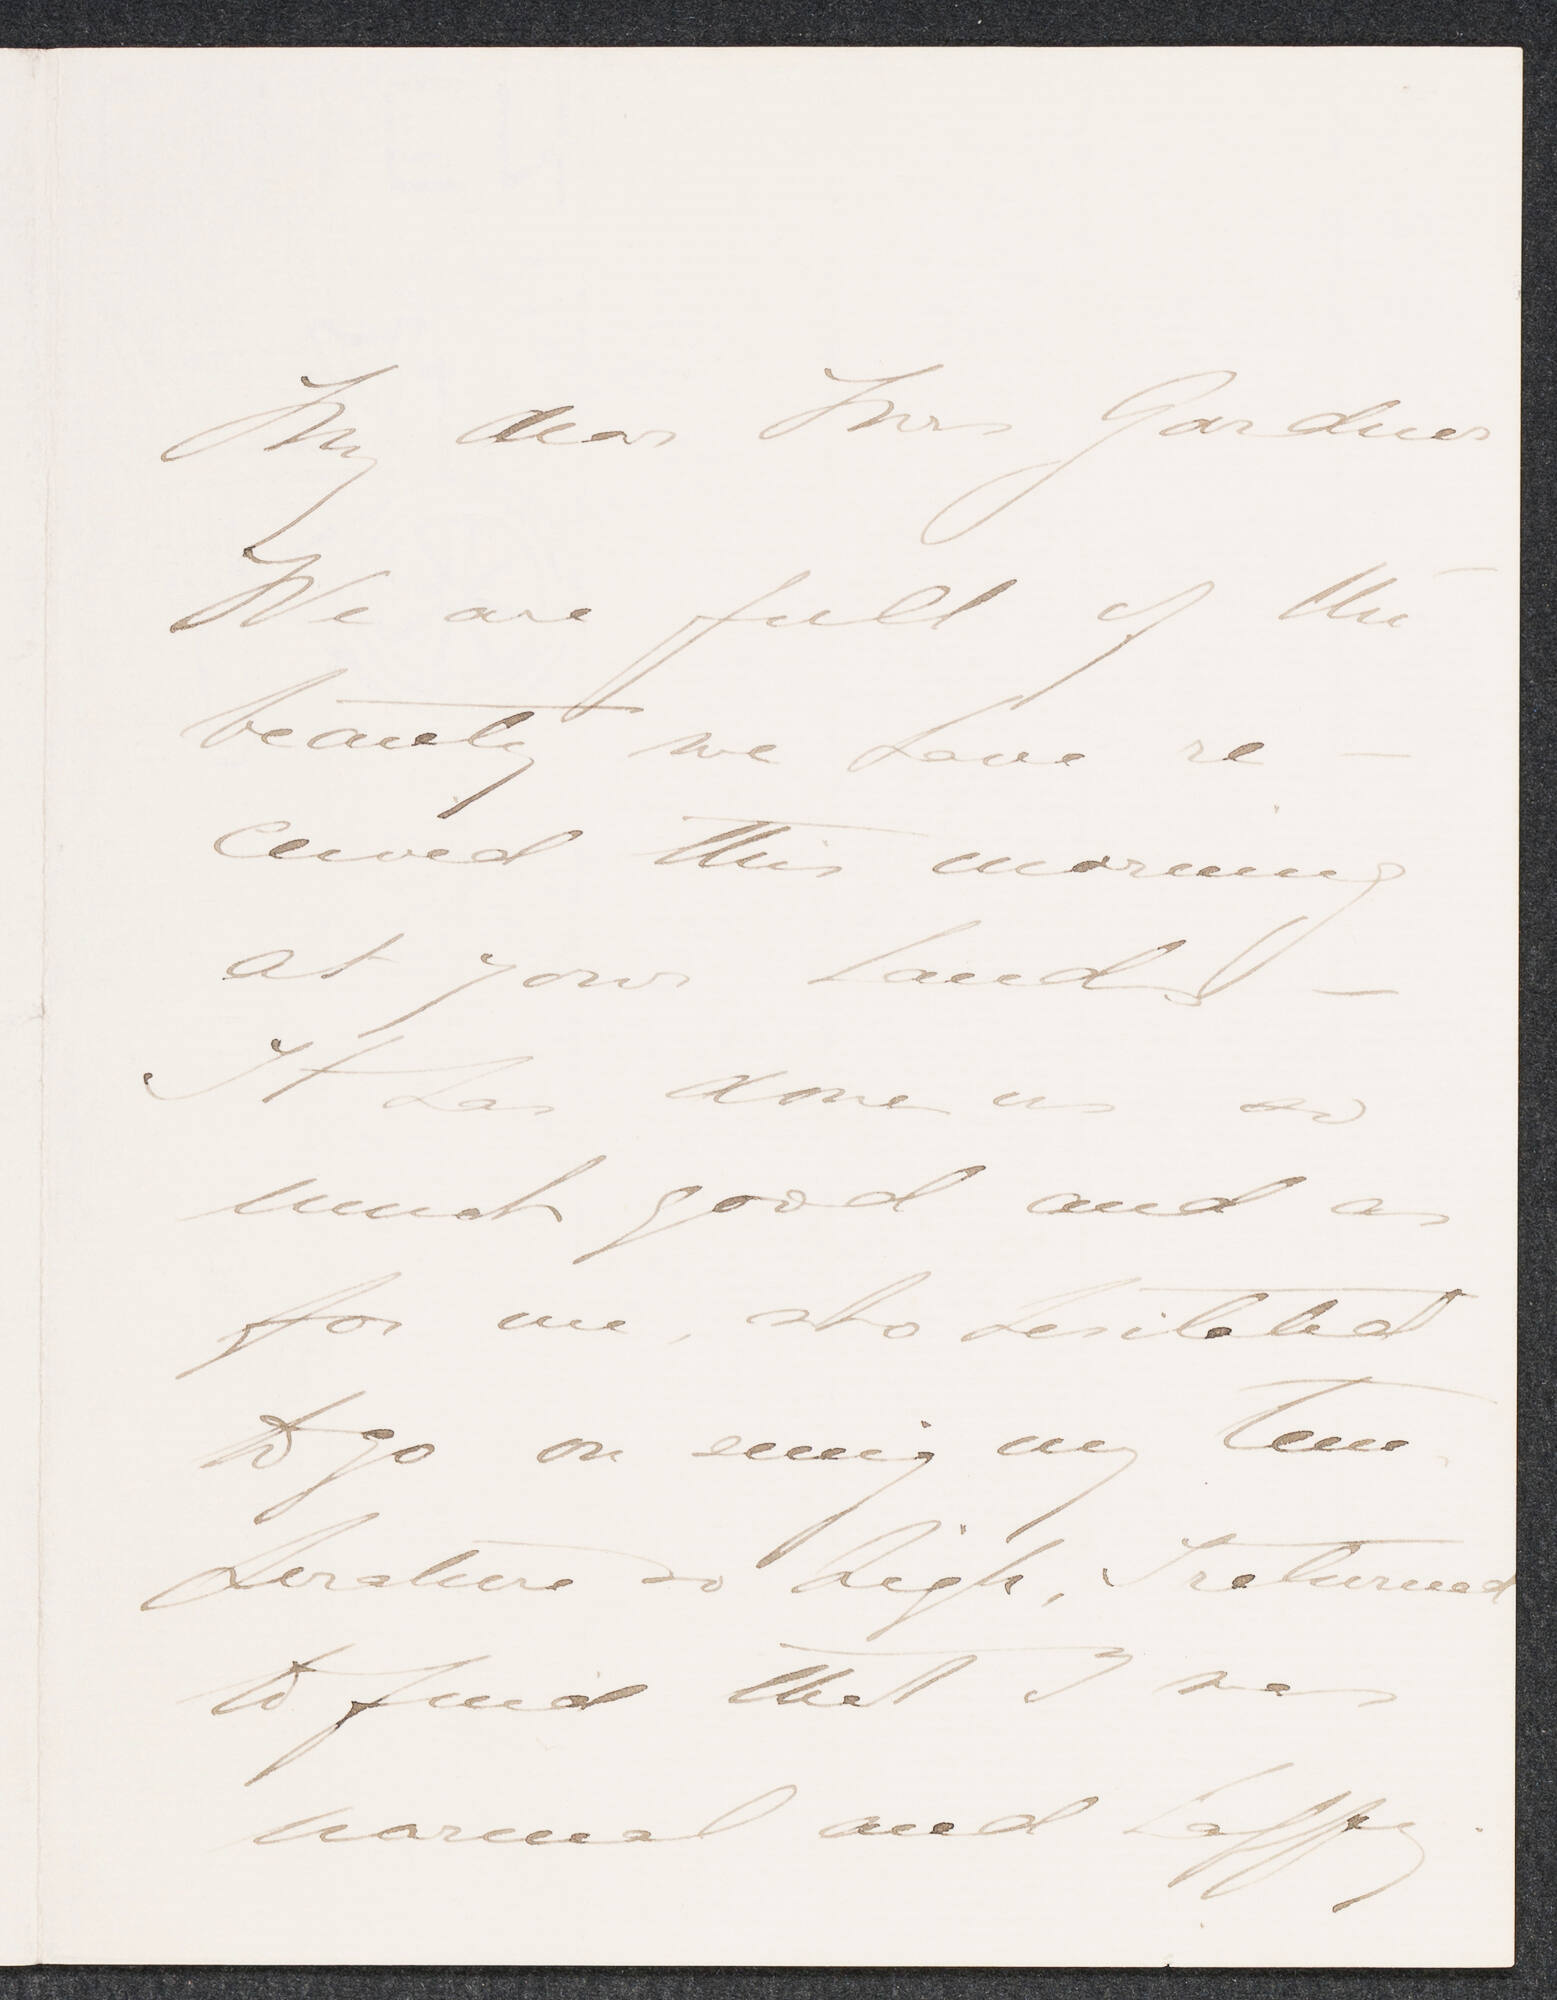 My dear Mrs Gardner
We are full of the
beauty we have re -
ceived this morning
at your hands -
It has done us so
much good and as
for me, who hesitated
to go on seeing my tem
perature so high, I returned
to find that I was
normal and happy.